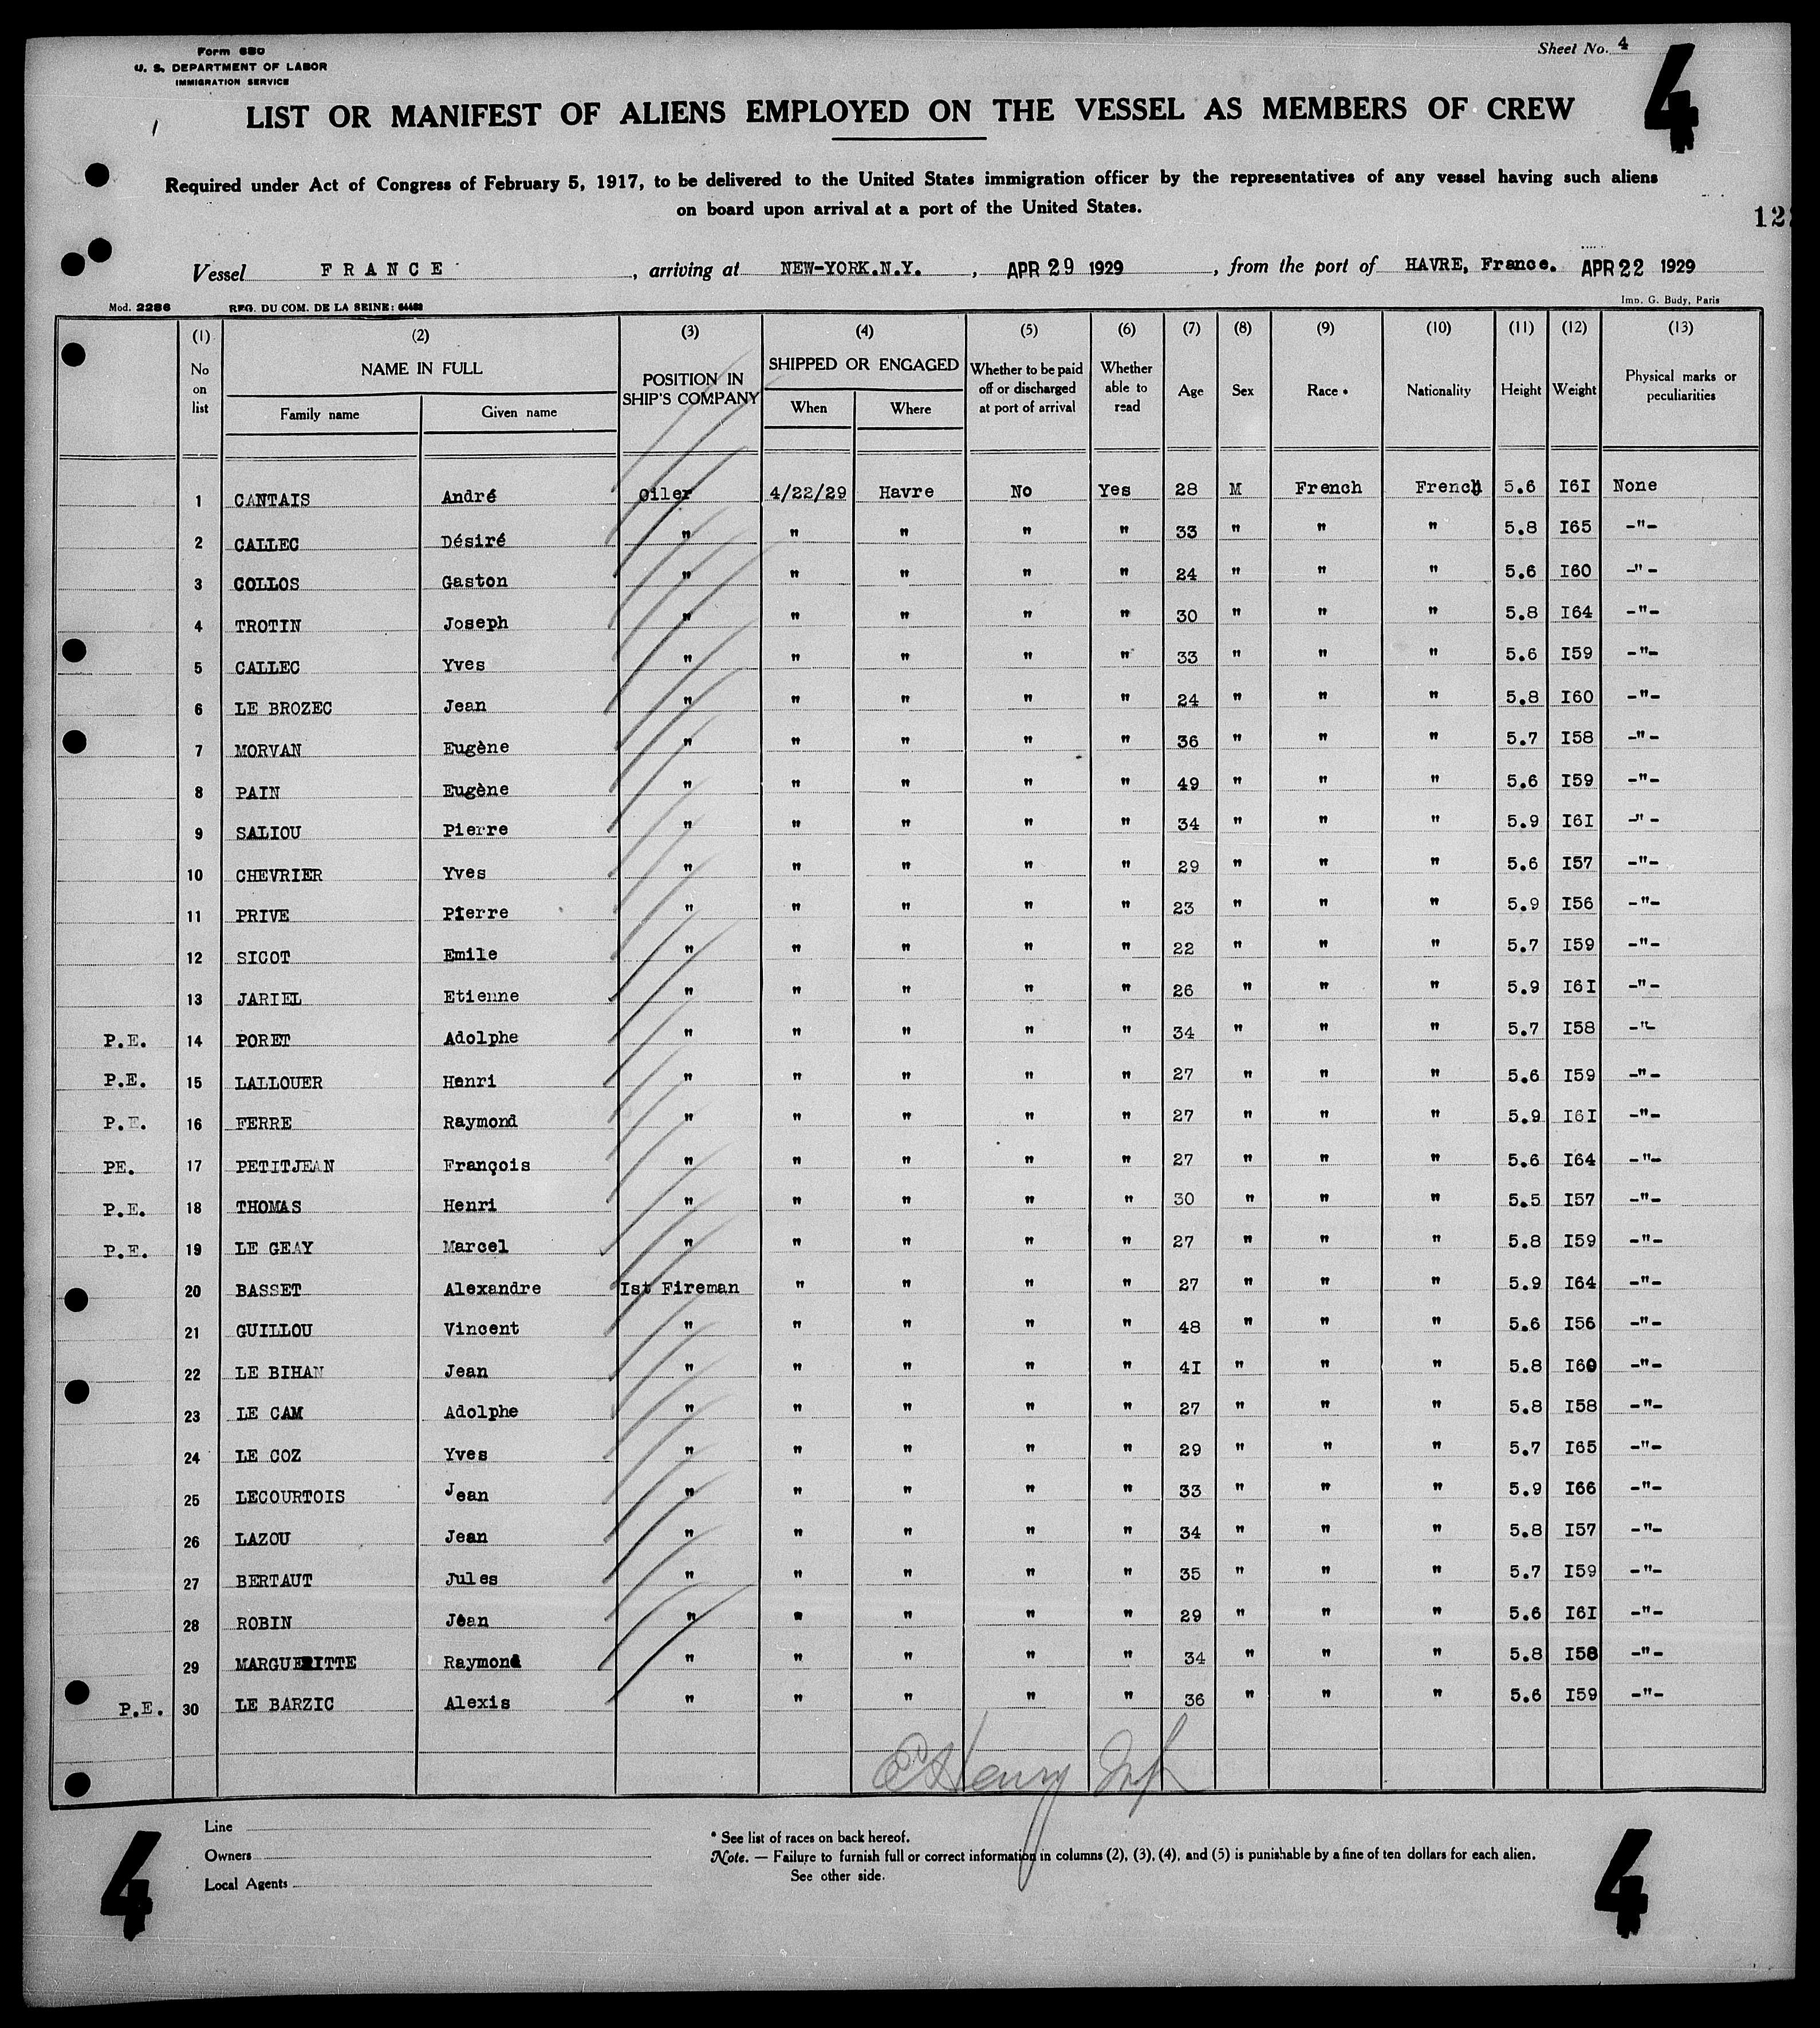 Form 680
U. S. DEPARTMENT OF LABOR
IMMIGRATION SERVICE
Sheet No. 4
4
LIST OR MANIFEST OF ALIENS EMPLOYED ON THE VESSEL AS MEMBERS OF CREW
Required under Act of Congress of February 5, 1917, to be delivered to the United States immigration officer by the representatives of any vessel having such aliens
on board upon arrival at a port of the United States.
Vessel FRANCE, arriving at NEW-YORK.N.Y., APR 29 1929, from the port of HAVRE, France. APR 22 1929
Mod. 2286 REG. DU COM. DE LA SEINE: Imp. G. Budy, Paris
(1) (2) (3) (4) (5) (6) (7) (8) (9) (10) (11) (12) (13)
No on list NAME IN FULL Family name Given name POSITION IN SHIP'S COMPANY SHIPPED OR ENGAGED When Where Whether to be paid off or discharged at port of arrival Whether able to read Age Sex Race * Nationality Height Weight Physical marks or peculiarities
1 CANTAIS André Oiler 4/22/29 Havre No Yes 28 M French French 5.6 I6I None
2 CALLEC Désiré " " " " " 33 " " " 5.8 I65 -"-
3 COLLOS Gaston " " " " " 24 " " " 5.6 I60 -"-
4 TROTIN Joseph " " " " " 30 " " " 5.8 I64 -"-
5 CALLEC Yves " " " " " 33 " " " 5.6 I59 -"-
6 LE BROZEC Jean " " " " " 24 " " " 5.8 I60 -"-
7 MORVAN Eugène " " " " " 36 " " " 5.7 I58 -"-
8 PAIN Eugène " " " " " 49 " " " 5.6 I59 -"-
9 SALIOU Pierre " " " " " 34 " " " 5.9 I6I -"-
10 CHEVRIER Yves " " " " " 29 " " " 5.6 I57 -"-
11 PRIVE Pierre " " " " " 23 " " " 5.9 I56 -"-
12 SICOT Emile " " " " " 22 " " " 5.7 I59 -"-
13 JARIEL Etienne " " " " " 26 " " " 5.9 I6I -"-
P.E. 14 PORET Adolphe " " " " " 34 " " " 5.7 I58 -"-
P.E. 15 LALLOUER Henri " " " " " 27 " " " 5.6 I59 -"-
P.E. 16 FERRE Raymond " " " " " 27 " " " 5.9 I6I -"-
PE. 17 PETITJEAN François " " " " " 27 " " " 5.6 I64 -"-
P.E. 18 THOMAS Henri " " " " " 30 " " " 5.5 I57 -"-
P.E. 19 LE GEAY Marcel " " " " " 27 " " " 5.8 I59 -"-
20 BASSET Alexandre Ist Fireman " " " " 27 " " " 5.9 I64 -"-
21 GUILLOU Vincent " " " " " 48 " " " 5.6 I56 -"-
22 LE BIHAN Jean " " " " " 4I " " " 5.8 I60 -"-
23 LE CAM Adolphe " " " " " 27 " " " 5.8 I58 -"-
24 LE COZ Yves " " " " " 29 " " " 5.7 I65 -"-
25 LECOURTOIS Jean " " " " " 33 " " " 5.9 I66 -"-
26 LAZOU Jean " " " " " 34 " " " 5.8 I57 -"-
27 BERTAUT Jules " " " " " 35 " " " 5.7 I59 -"-
28 ROBIN Jean " " " " " 29 " " " 5.6 I6I -"-
29 MARGUERITTE Raymond " " " " " 34 " " " 5.8 I58 -"-
P.E. 30 LE BARZIC Alexis " " " " " 36 " " " 5.6 I59 -"-
Line
Owners
Local Agents
* See list of races on back hereof.
Note. — Failure to furnish full or correct information in columns (2), (3), (4), and (5) is punishable by a fine of ten dollars for each alien.
See other side.
4
4